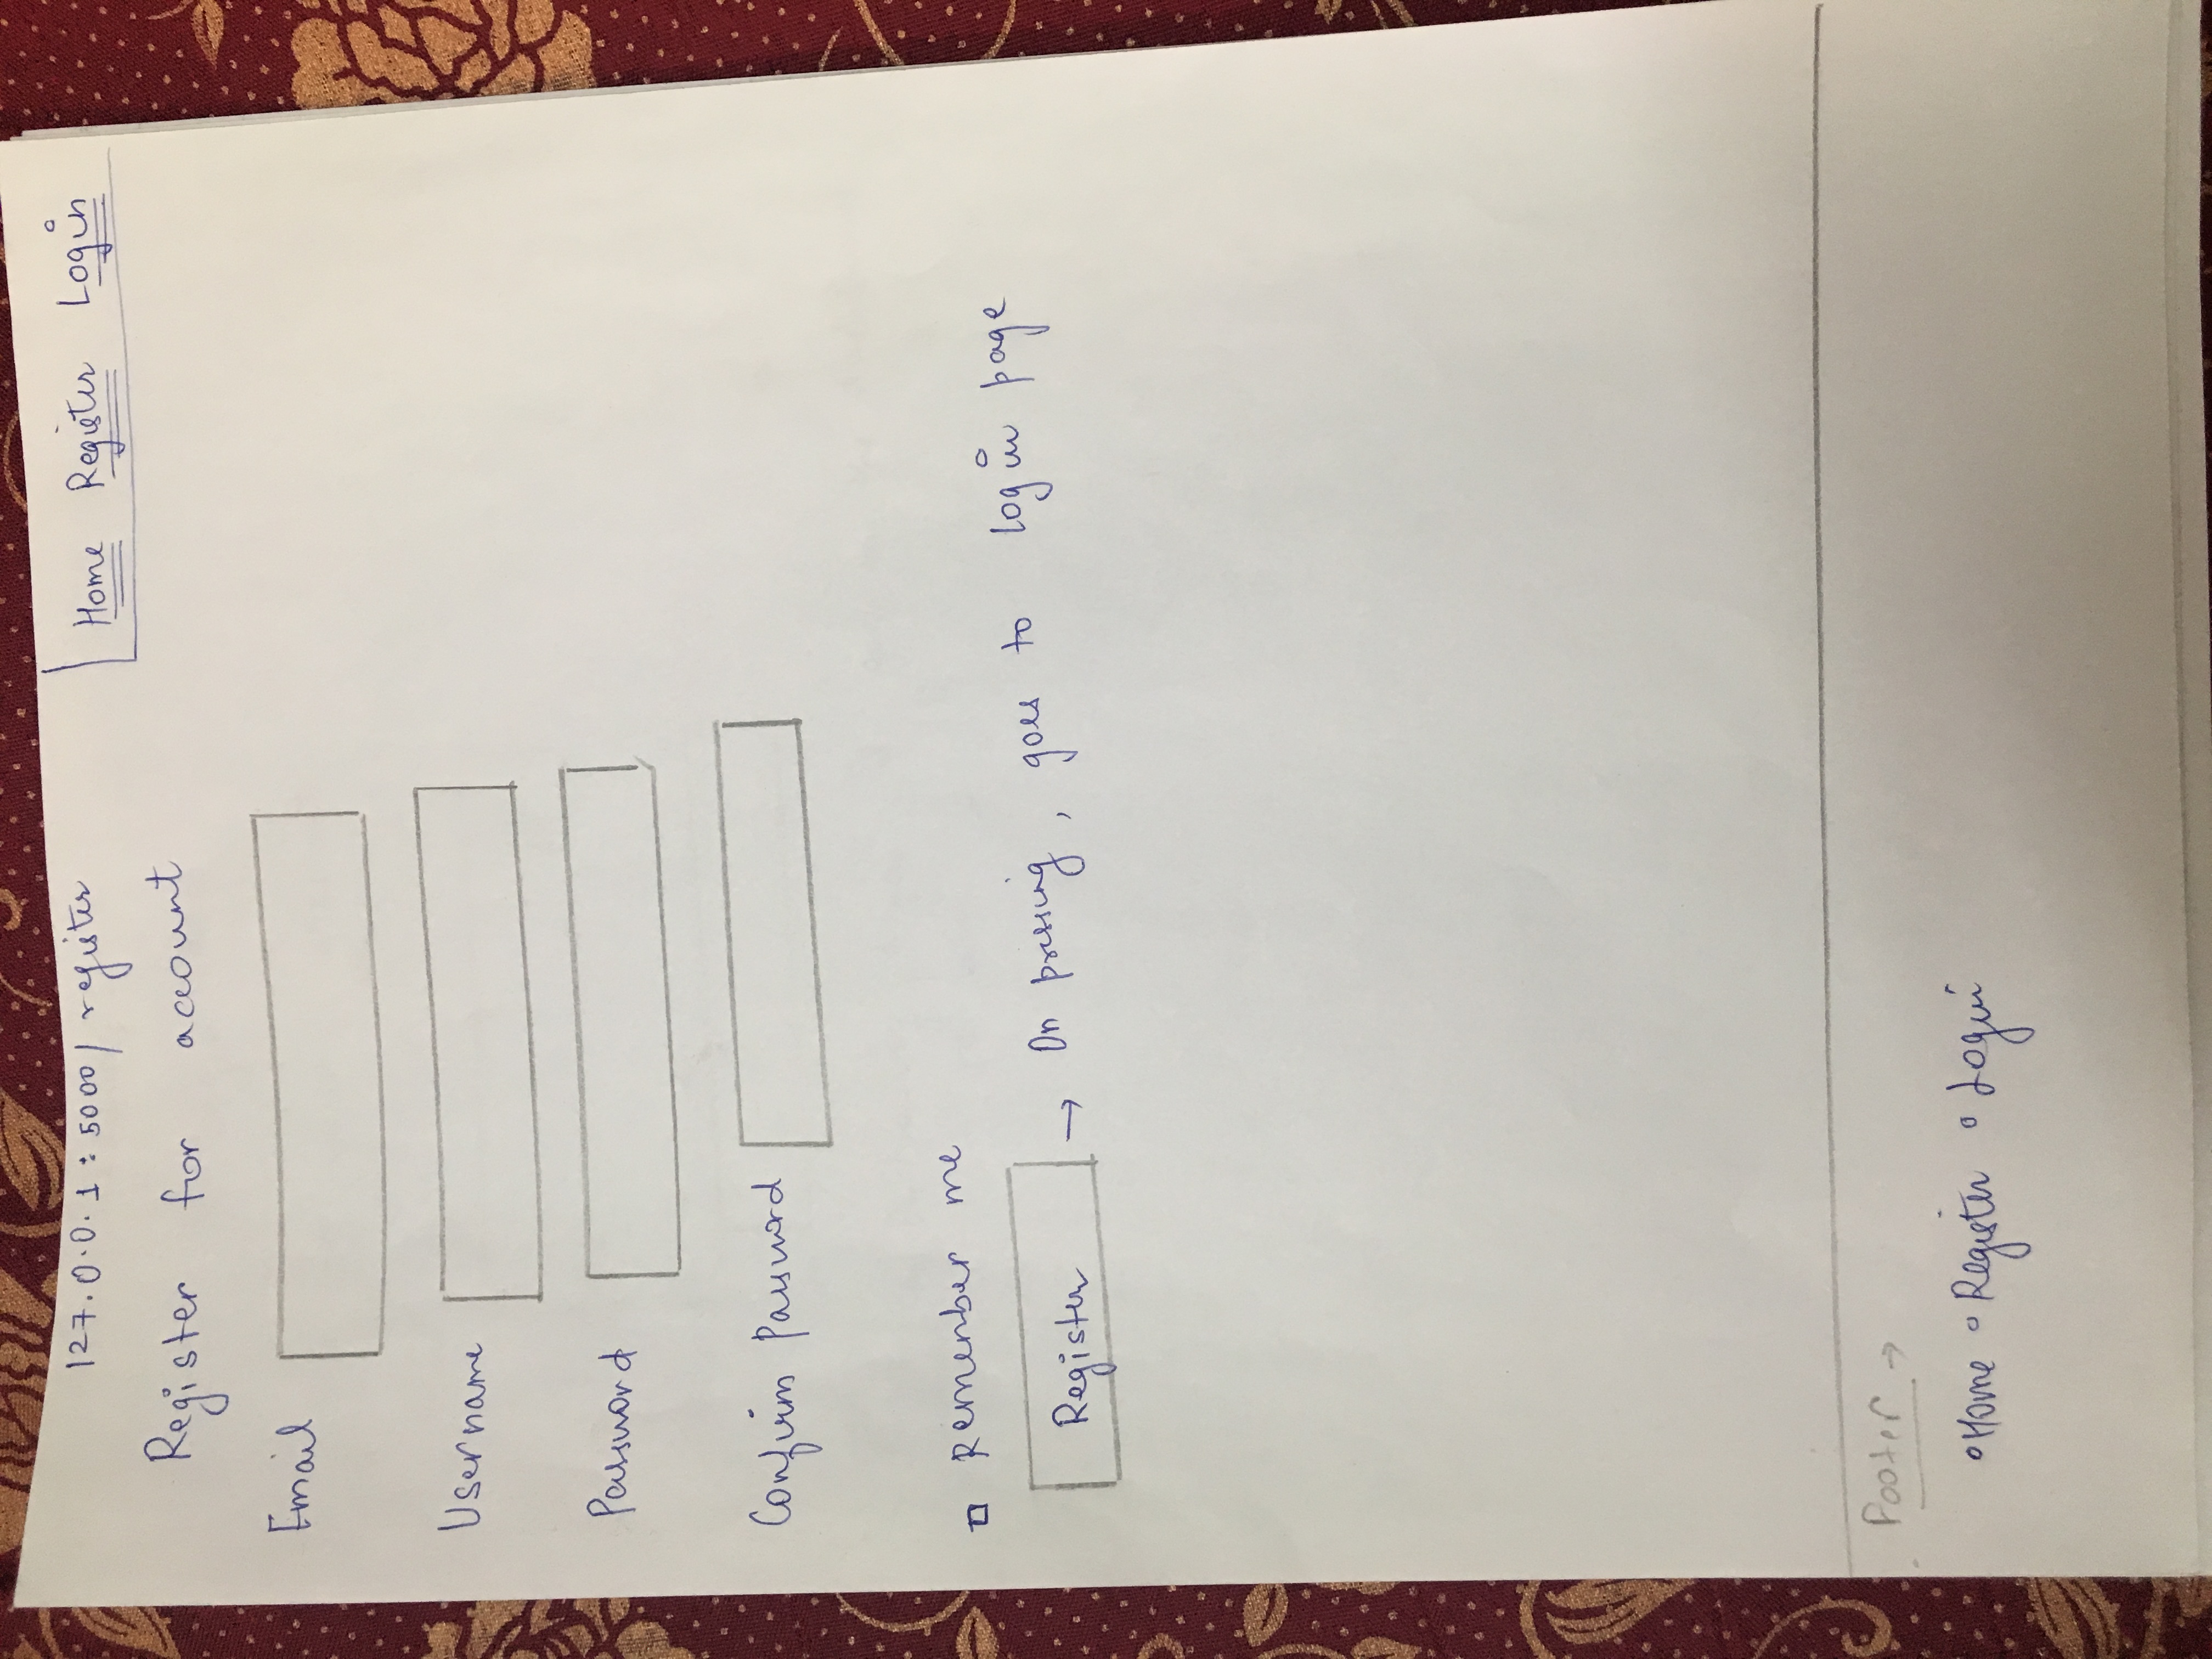 127.0.0.1:5000/register
Home Register Login
Register for account
Email
Username
Password
Confirm Password
Remember me
Register → On pressing, goes to login page
Footer →
Home Register Login